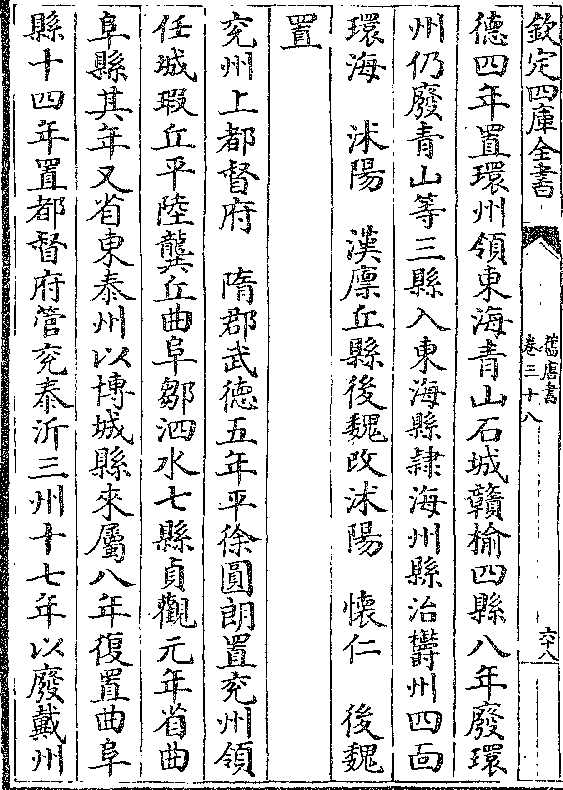 欽定四庫全書
舊唐書
卷三十八
六十八
德四年置環州領東海青山石城贛榆四縣八年廢環
州仍廢青山等三縣入東海縣隷海州縣治鬱州四面
環海　沭陽　漢廪丘縣後魏改沭陽　懐仁　後魏
置
兖州上都督府　隋郡武德五年平徐圓朗置兖州領
任城瑕丘平陸龔丘曲阜鄒泗水七縣貞觀元年省曲
阜縣其年又省東泰州以博城縣來屬八年復置曲阜
縣十四年置都督府管兖泰沂三州十七年以廢戴州